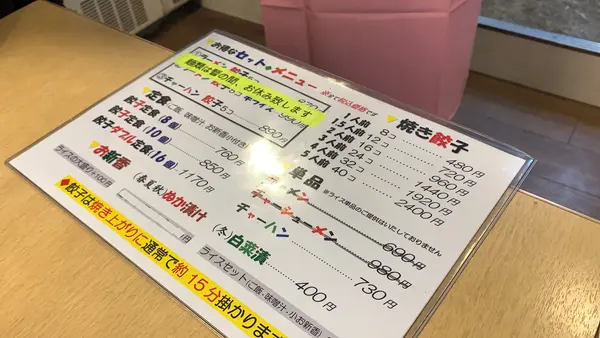 お得なセット・メニュー
※全て税込価格です
麺類は暫の間、お休み致します
③チャーハン 餃子5コ 880円
定食 (ご飯、味噌汁、お新香小付き)
餃子定食(8個) 760円
餃子定食(10個) 850円
餃子ダブル定食(16個) 1170円
ライスの大盛り+100円
お新香
(春夏秋) ぬか漬け 円
(冬) 白菜漬 400円
ライスセット(ご飯、味噌汁・小お新香)
焼き餃子
1人前 8コ 480円
12コ 720円
2人前 16コ 960円
24コ 1440円
4人前 32コ 1920円
40コ 2400円
単品
※ライス単品のご提供はいたしておりません
ラーメン 690円
チャーシューメン 980円
チャーハン 730円
◆餃子は焼き上がりに通常で約15分掛かります